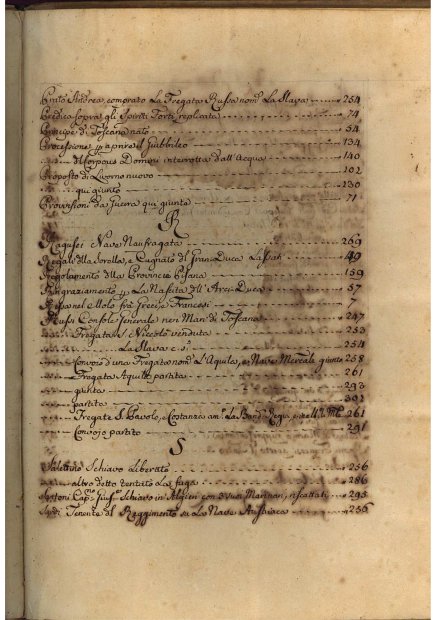 Prato Andrea, comprato La Fregata Russa nom.a La Slava 254
Predica sopra gli Spiriti Forti replicata 74
Principe di Toscana nato 54
Processione p aprire il Giubbileo 134
di Corpus Domini interrotta dall'Acqua 140
Proposto di Livorno nuovo 102
qui giunto 130
Provvisioni da Guerra qui giunte 71
R
Ragusei Nave Naufragata 269
Regali della Sorella, e Cugnato del Gran-Duca 49
Regolamento della Provincia Pisana 159
Ringraziamento p La Nascita dell'Arci-Duca 57
Rissa nel Molo frà Greci, e Francesi 7
Russi Console Generale nei Mari di Toscana 247
Fregata S. Niccolò venduta 253
La Slava 254
Convoio d'una Fregata nom.a L'Aquila, e Nave Mercale giunte 258
Fregata Aquila partita 261
giunta 293
partita 302
Fregate S. Pavolo, e Costanza 261
Convojo partito 291
S
Schiavo Liberato 256
altro detto tentato La fuga 286
Schiavo in Algieri con 3 suoi Marinari, riscattati 295
Tenente del Reggimento su La Nave Austriaca 236